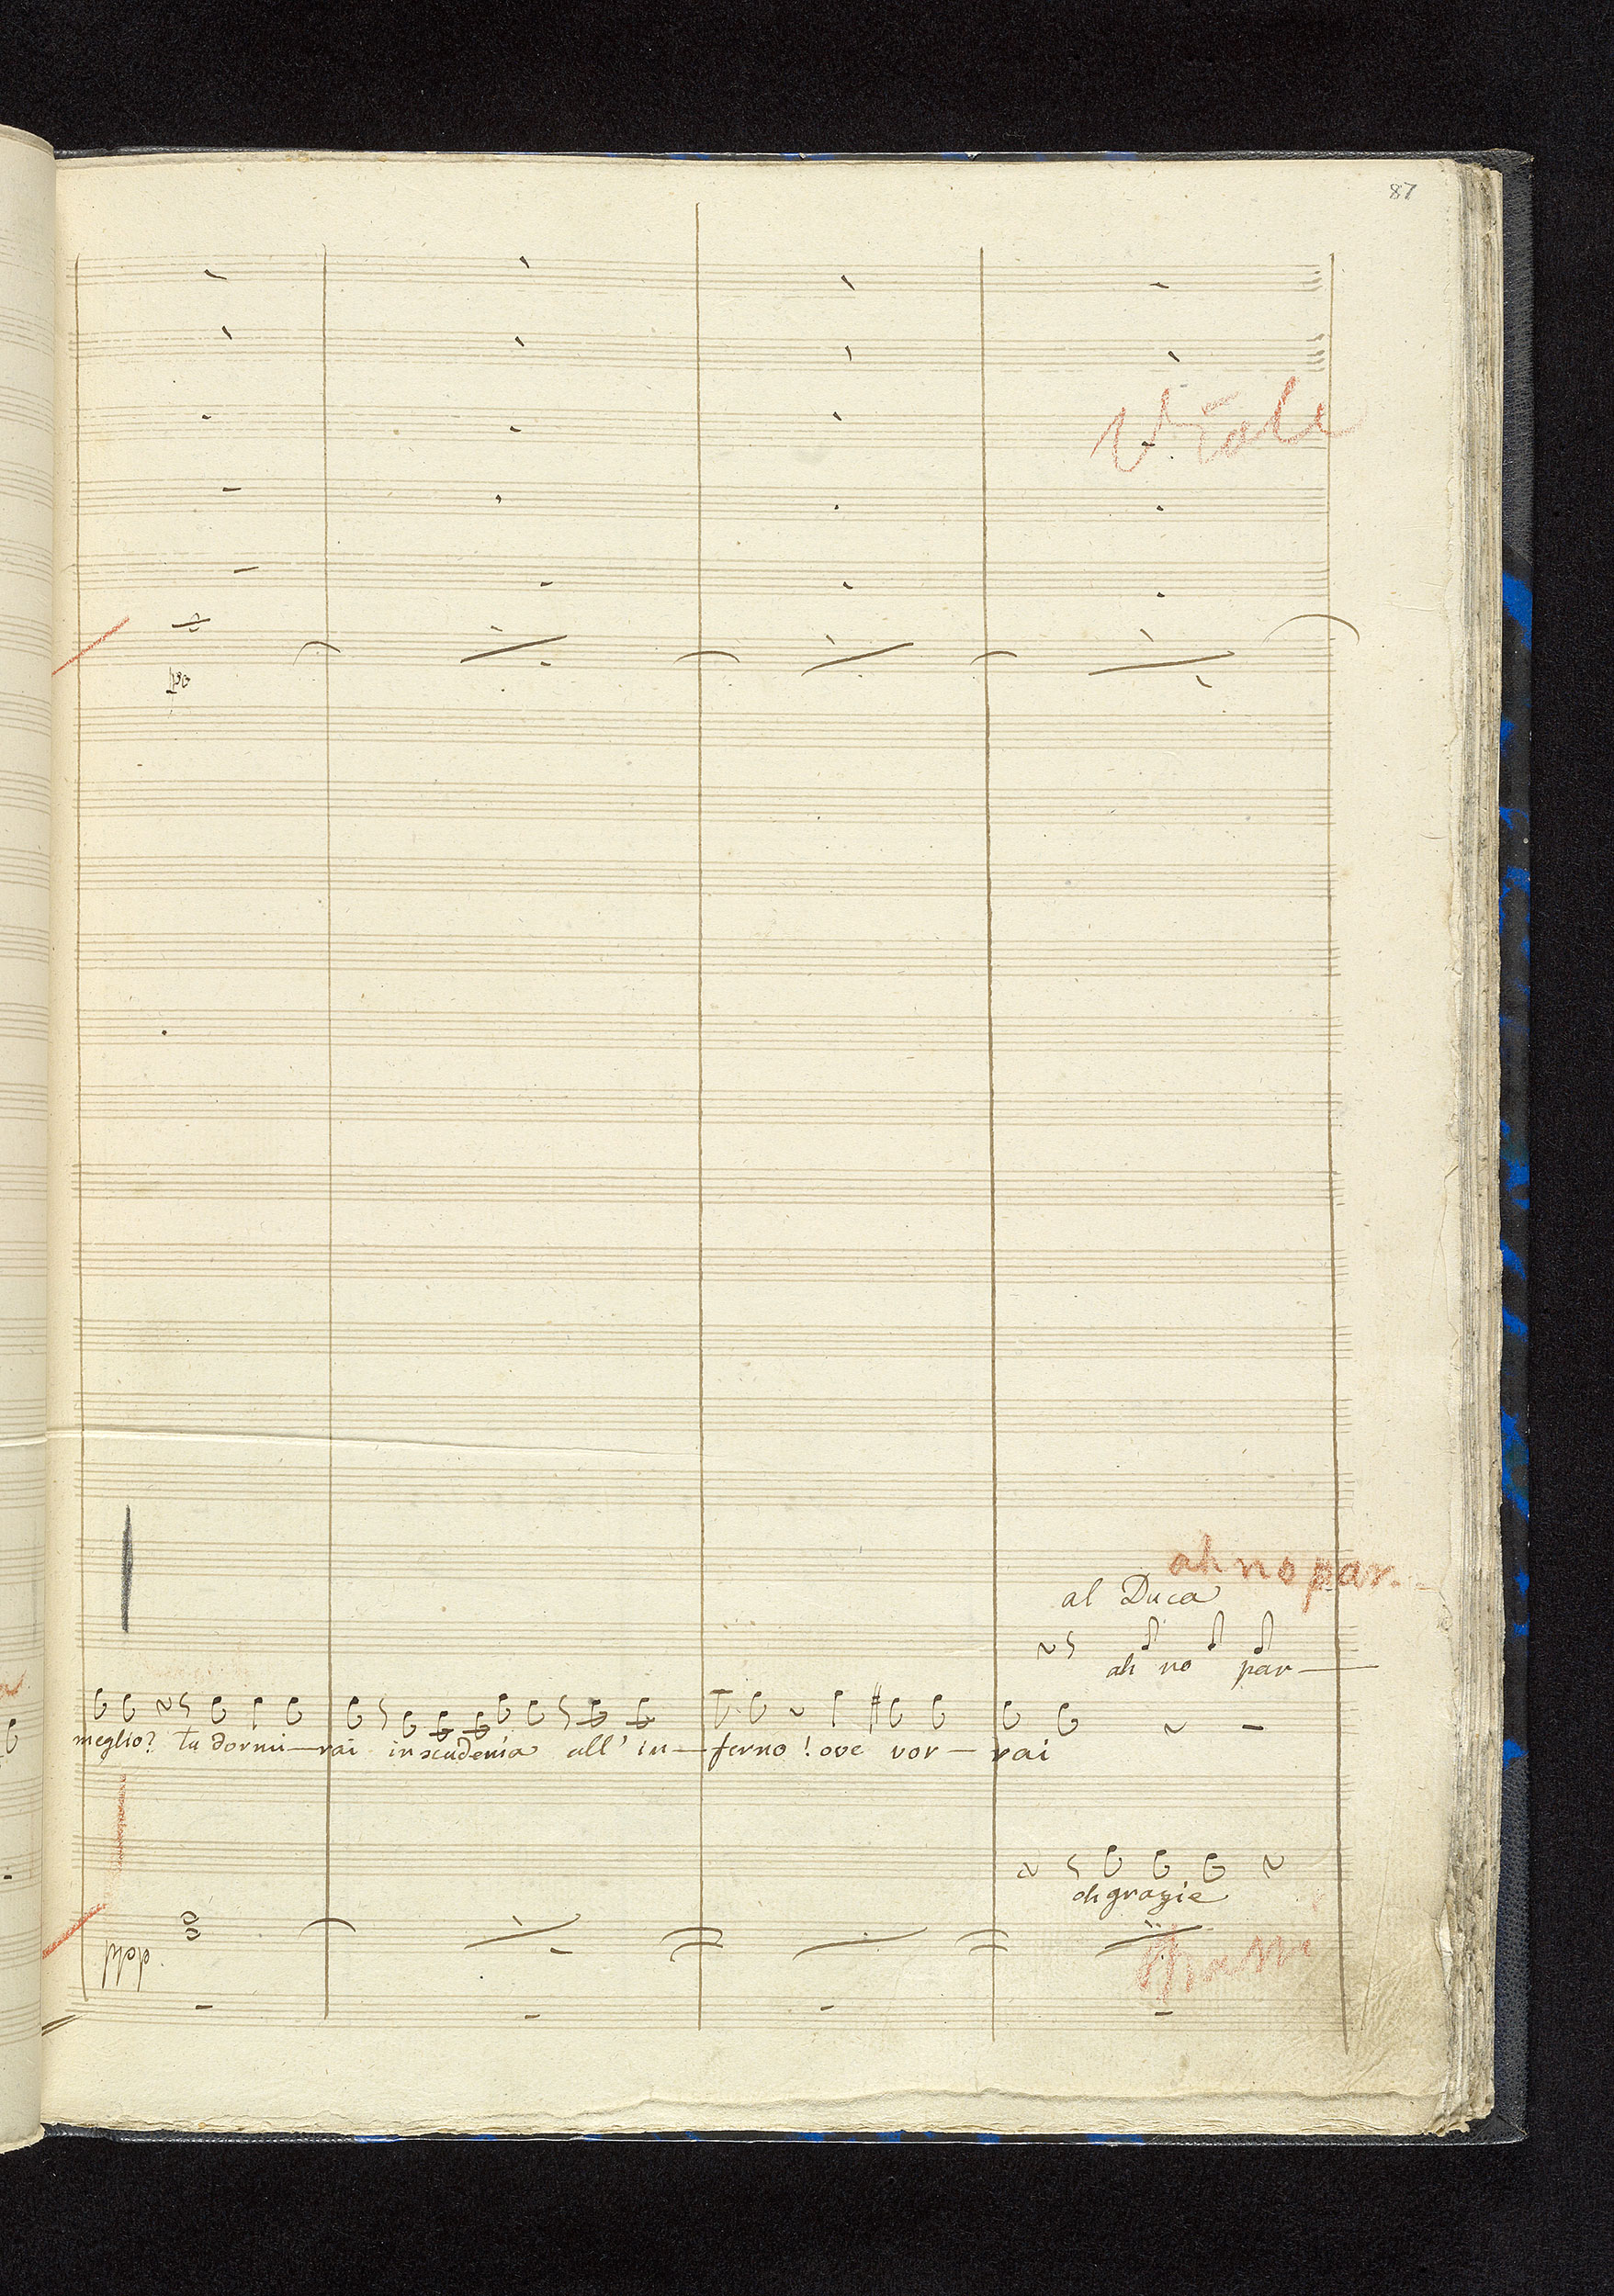 87
Viole
ah no par.
al Duca
ah no par—
meglio? tu dormi—rai in scudenia all' in—ferno! ove vor—rai
oh grazie